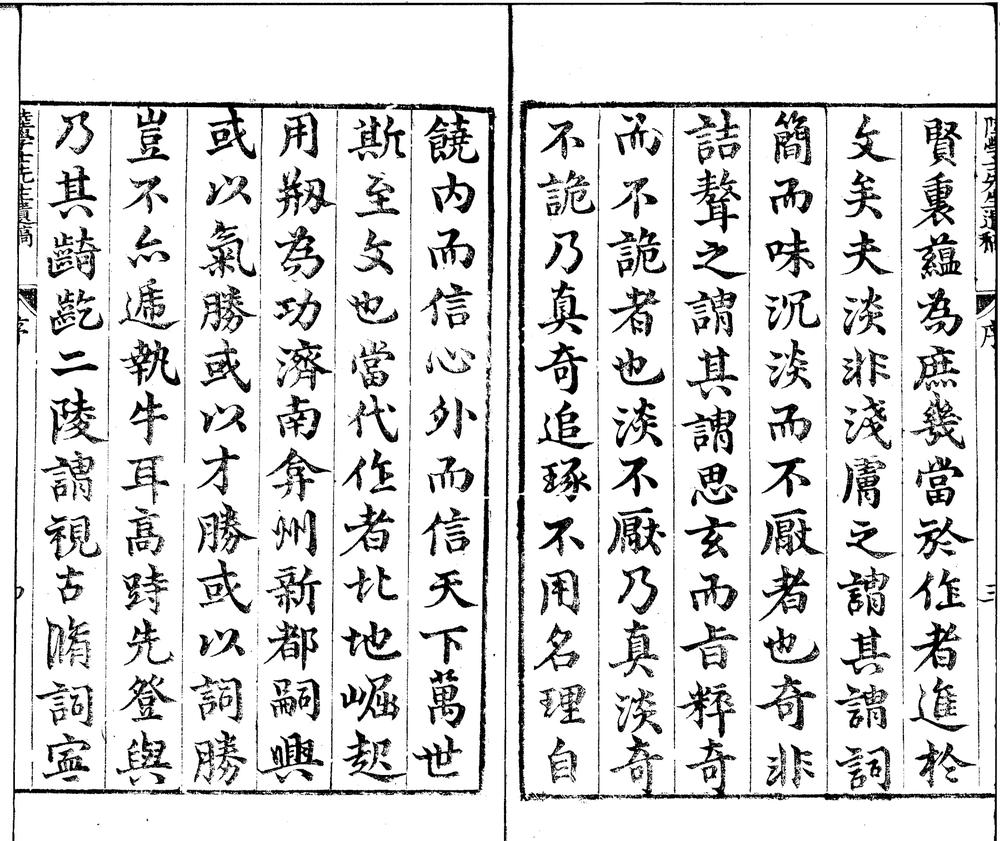 賢裏蘊為庶幾當於作者進於
文矣夫淡非淺膚之謂其謂詞
簡而味沉淡而不厭者也奇非
詰聱之謂其謂思玄而旨粹奇
而不詭者也淡不厭乃真淡奇
不詭乃真奇追琢不用名理自
饒内而信心外而信天下萬世
斯至文也當代作者北地崛起
用剏為功濟南弇州新都嗣興
或以氣勝或以才勝或以詞勝
豈不亦遞執牛耳高跱先登與
乃其齮齕二陵謂視古脩詞寍
先生遺稿
序
三
先生遺稿
序